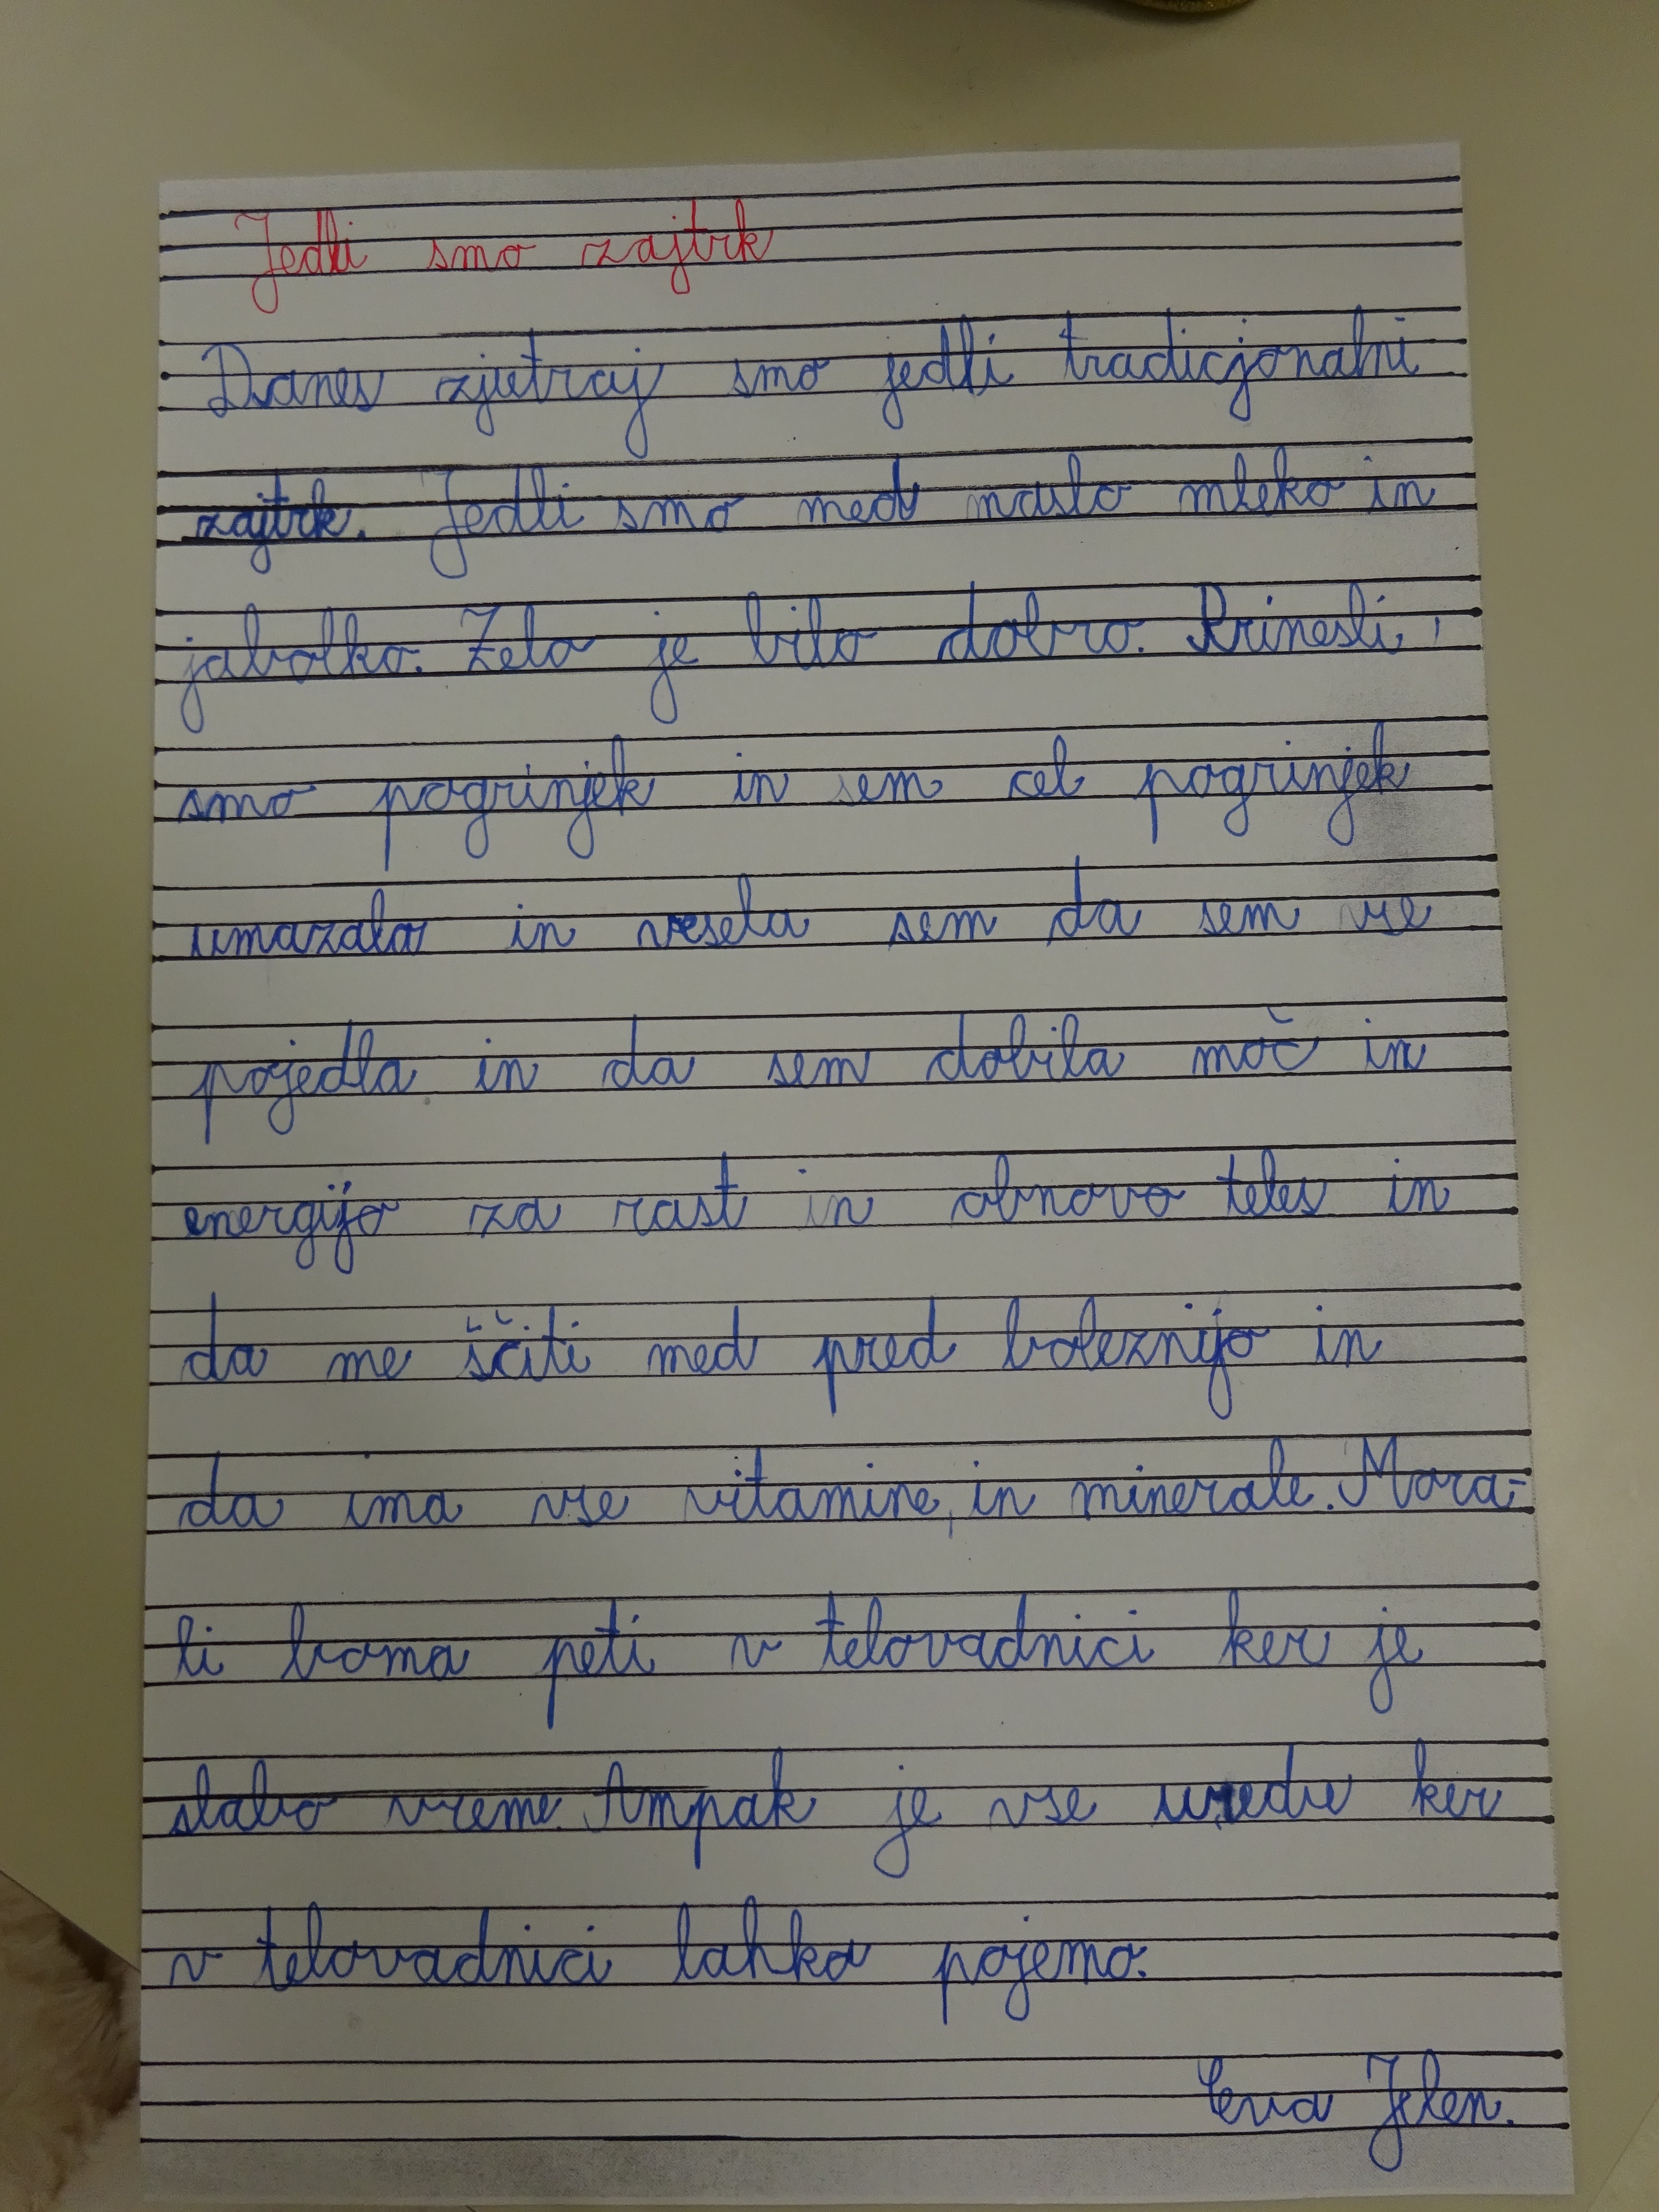 Jedli smo zajtrk
Danes zjutraj smo jedli tradicjonalni
zajtrk. Jedli smo med maslo mleko in
jabolko. Zelo je bilo dobro. Prinesli
smo pogrinjek in sem cel pogrinjek
umazala in vesela sem da sem vse
pojedla in da sem dobila moč in
energijo za rast in obnovo teles in
da me ščiti med pred boleznijo in
da ima vse vitamine, in minerale. Mora-
li bomo peti v telovadnici ker je
slabo vreme. Ampak je vse uredu ker
v telovadnici lahko pojemo.
Eva Jelen.